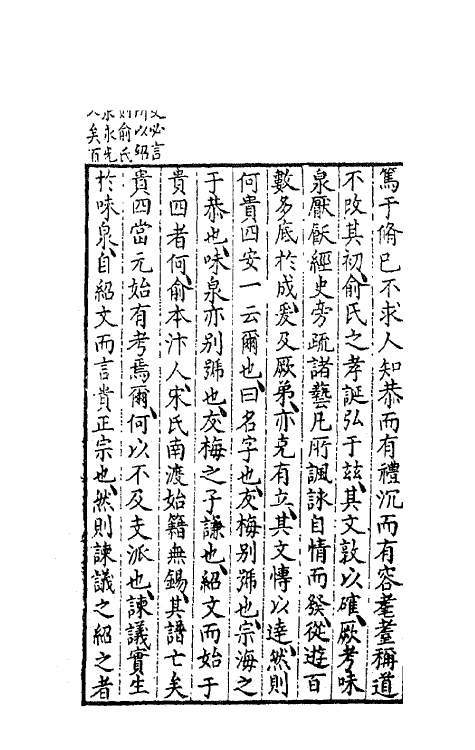 篤于脩已不求人知恭而有禮沉而有容耄耋稱道
不改其初俞氏之孝誕弘于玆其文敦以確厥考味
泉厭飫經史旁疏諸藝凡所諷詠自情而發從遊百
數多底於成爰及厥弟亦克有立其文愽以達然則
何貴四安一云爾也曰名字也友梅別號也宗海之
于恭也味泉亦別號也友梅之子謙也紹文而始于
貴四者何俞本汴人宋氏南渡始籍無錫其譜亡矣
貴四當元始有考焉爾何以不及支派也諫議實生
於味泉自紹文而言貴正宗也然則諫議之紹之者
文必言
所以紹
則俞氏
永先
人矣百